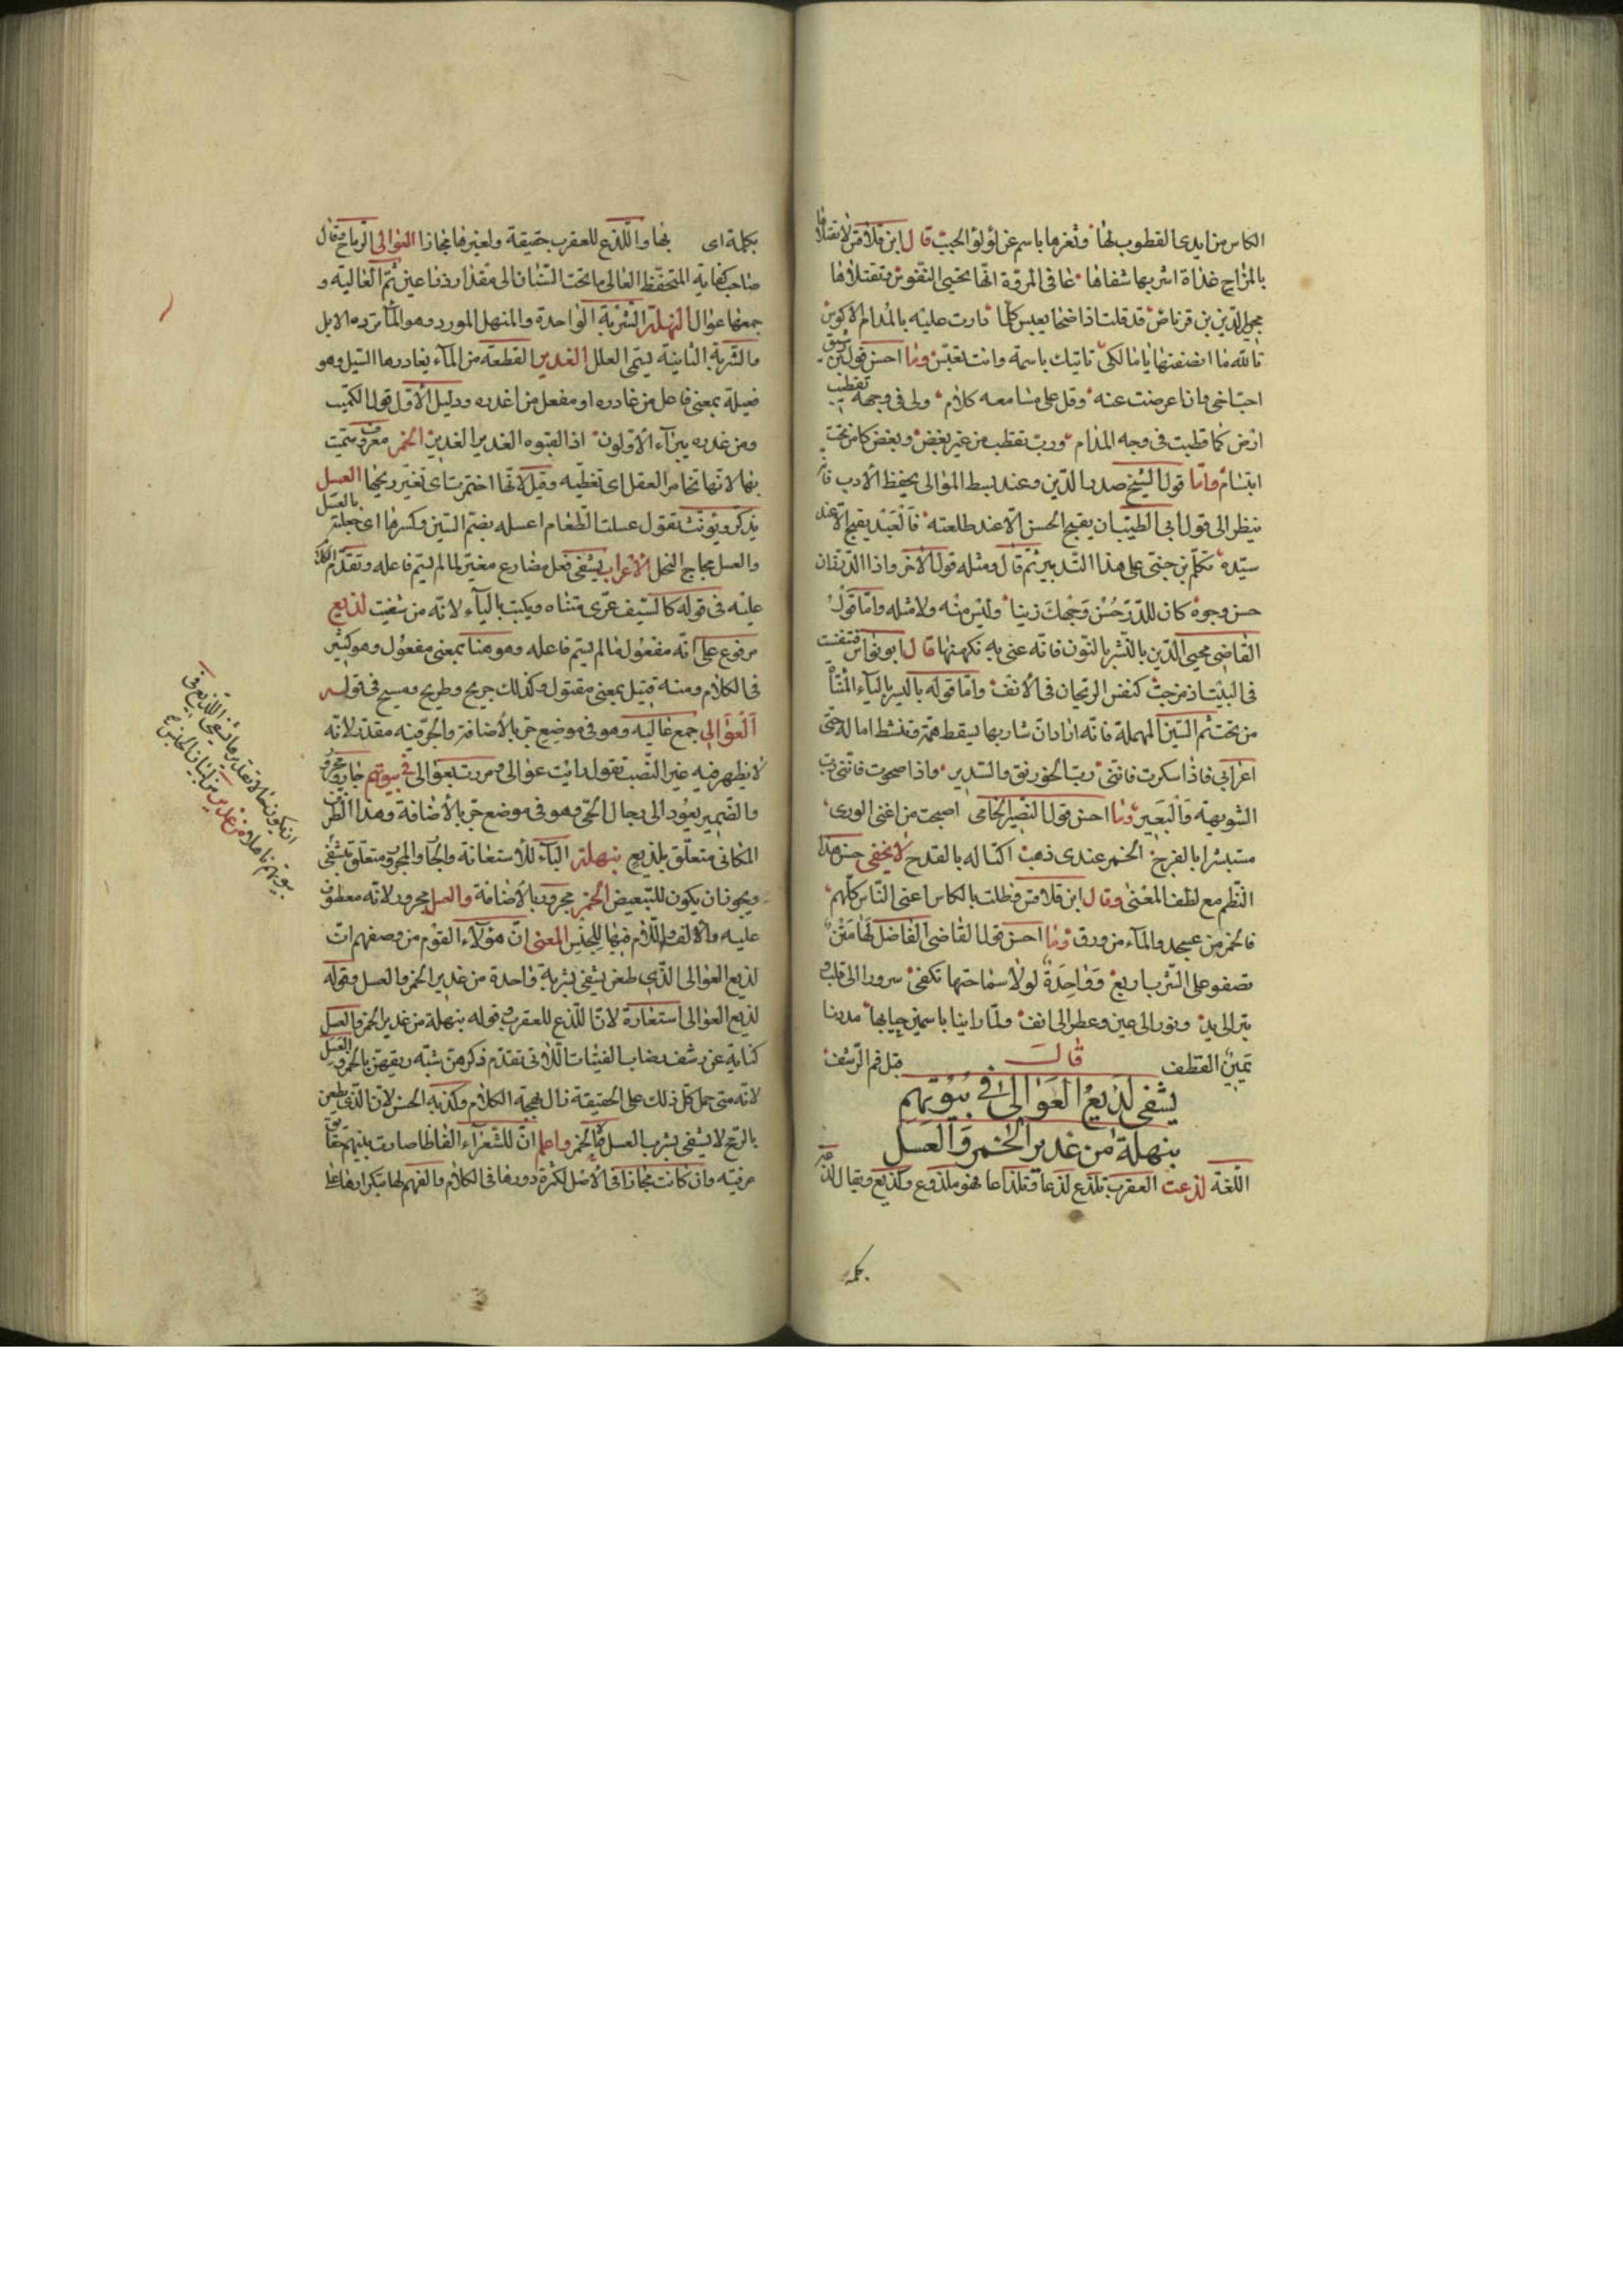 الكاس من ايدي القطوب لها وثغرها باسم عن لؤلؤ الحبب قال ابن قلاقس لا تقتلاها
بالمزاج غداة اشربها شفاها عافى المرقة انها تحيي النفوس وتقتلاها
مجير الدين بن قرناص قد قلت اذ اضحا يعبس كلما دارت عليه بالمدام الاكوس
تالله ما انصفتها يا مالكي تاتيك باسمة وانت تعبس وما احسن قول ابن رشيق
احب اخي وان اعرضت عنه وقل على مسامعه كلام ولي في وجهه تقطيب
ارض كما قطبت في وجه المدام ورب تقطب من غير بغض وبغض كامن تحت
ابتسام واما قول الشيخ صدر الدين وعند بسط الموالي يحفظ الادب فانه
ينظر الى قول ابي الطيب ان يقبح الحسن الا عند طلعته فالعبد يقبح الا عند
سيده تكلم بن جني على هذا التدبير ثم قال ومثله قول الاخر واذا الدر زان
حسن وجوه كان للدر حسن وجهك زينا وليس منه ولا مثله واما قول
القاضي محيي الدين بالنشر بالنون فانه عنى به نكهتها قال ابو نواس فتنفست
في البيت اذ مزجت كنفس الريحان في الانف واما قوله باليسر بالياء المثناة
من تحت ثم السين المهملة فانه اراد ان شاربها يسقط همه وتنشط اماله حتى
اعرابي فاذا سكرت فانني رب الخورنق والسدير واذا صحوت فانني رب
الشويهة والبعير وما احسن قول النصير الحمامي اصبحت من اغنى الورى
مستبشرا بالفرح الخمر عندي ذهب اكتاله بالقدح لا يخفى حسن هذا
النظم مع لطف المعنى وقال ابن قلاقس فظلت بالكاس اغنى الناس كلهم
فالخمر من عسجد والماء من ورق وما احسن قول القاضي الفاضل لها متن
تصفو على الشرب اربع وواحدة لولا سماحتها تكفي سرورا الى قلب و
تبر الى يد ونور الى عين وعطر الى انف ولما راينا ياسمين حبابها مددنا
يمين القطف قبل فم الرشف قال
يشفى لديغ العوالي في بيوتهم
بنهلة من غدير الخمر والعسل
اللغة لدغت العقرب تلدغ لدغا وتلداغا فهو ملدوغ ولديغ ويقال لدغه
بكلمة
بكلمة اي بها واللدغ للعقرب حقيقة ولغيرها مجازا العوالي الرماح وقال
صاحب كفاية المتحفظ العالي ما تحت السنان الى مقدار ذراعين ثم العالية و
جمعها عوال النهلة الشربة الواحدة والمنهل المورد وهو الماء ترده الابل
والشربة الثانية يسمى العلل الغدير القطعة من الماء يغادرها السيل وهو
فعيلة بمعنى فاعل من غادره او مفعل من اغدره ودليل الاول قول الكميت
ومن غدره نبز الاولون اذ لقبوه الغدير الغدير الخمر معروف سميت
بها لانها تخامر العقل اي تغطيه وقيل لانها اختمرت اي تغير ريحها العسل
يذكر ويؤنث تقول عسلت الطعام اعسله بضم السين وكسرها اي جعلته بالعسل
والعسل مجاج النحل الاعراب يشفى فعل مضارع مغير لما لم يسم فاعله وتقدم الكلام
عليه في قوله كالسيف عرى متناه ويكتب بالياء لانه من شفيت لديغ
مرفوع على انه مفعول ما لم يسم فاعله وهو هنا بمعنى مفعول وهو كثير
في الكلام ومنه قتيل بمعنى مقتول وكذلك جريح وطريح ومسيح في قوله
العوالي جمع عالية وهو في موضع جر بالاضافة والجر فيه مقدر لانه
لا يظهر فيه غير النصب تقول رايت عوالي ومررت بعوالي في بيوتهم جار ومجرور
والضمير يعود الى رجال الحي وهو في موضع جر بالاضافة وهذا الظرف
المكاني متعلق بلديغ بنهلة الباء للاستعانة والجار والمجرور متعلق بيشفى
ويجوز ان يكون للتبعيض الخمر مجرور بالاضافة والعسل مجرور لانه معطوف
عليه والالف واللام فيها للجنس المعنى ان هؤلاء القوم من وصفهم ان
لديغ العوالي الذي طعن يشفى بشربة واحدة من غدير الخمر والعسل وقوله
لديغ العوالي استعارة لان اللدغ للعقرب وقوله بنهلة من غدير الخمر والعسل
كناية عن رشف رضاب الفتيات اللاتي تقدم ذكرهن شبه ريقهن بالخمر والعسل
لانه متى حمل كل ذلك على الحقيقة زال بهجة الكلام وكذبه الحس لان الذي يطعن
بالرمح لا يشفى بشرب العسل والخمر واعلم ان للشعراء الفاظا صارت بينهم حقايق
عرفية وان كانت مجازا في الاصل لكثرة دورها في الكلام والفهم لها بتكرارها على